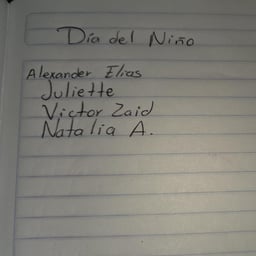 Día del Niño
Alexander Elias
Juliette
Victor Zaid
Natalia A.